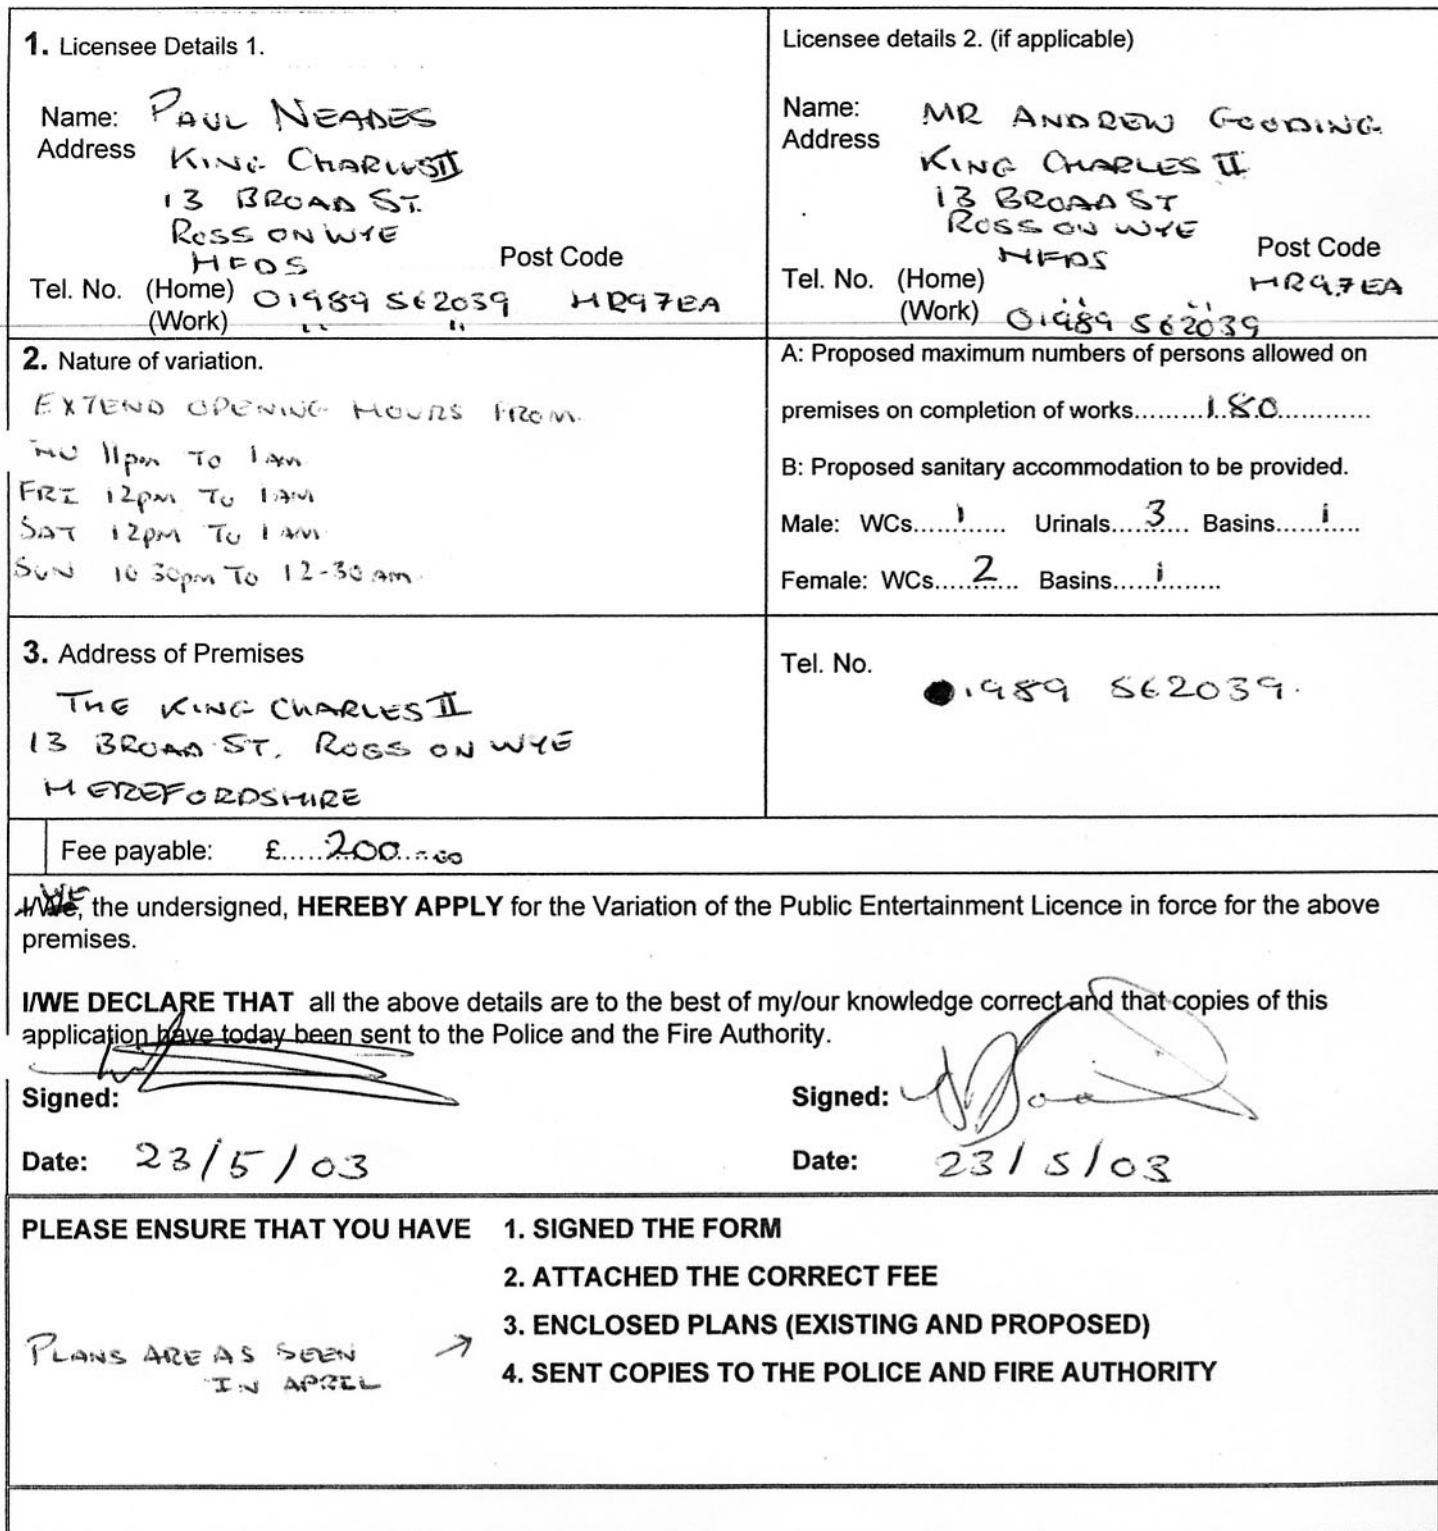 1. Licensee Details 1.
Name: PAUL NEADES
Address KING CHARLES II
13 BROAD ST.
ROSS ON WYE
HFDS Post Code
Tel. No. (Home) 01989 562039 HR97EA
(Work) " "
Licensee details 2. (if applicable)
Name: MR ANDREW GOODING
Address KING CHARLES II
13 BROAD ST
ROSS ON WYE
HFDS Post Code
Tel. No. (Home) " " HR97EA
(Work) 01989 562039
2. Nature of variation.
EXTEND OPENING HOURS FROM
THU 11pm TO 1AM
FRI 12pm TO 1AM
SAT 12pm TO 1AM
SUN 10 30pm TO 12-30 am.
A: Proposed maximum numbers of persons allowed on
premises on completion of works.........180............
B: Proposed sanitary accommodation to be provided.
Male: WCs......1...... Urinals.....3.... Basins......1.....
Female: WCs.....2.... Basins......1........
3. Address of Premises
THE KING CHARLES II
13 BROAD ST. ROSS ON WYE
HEREFORDSHIRE
Tel. No.
01989 562039.
Fee payable: £.....200.-00
WE
I/We, the undersigned, HEREBY APPLY for the Variation of the Public Entertainment Licence in force for the above
premises.
I/WE DECLARE THAT all the above details are to the best of my/our knowledge correct and that copies of this
application have today been sent to the Police and the Fire Authority.
Signed:
Signed:
Date: 23/5/03
Date: 23/5/03
PLEASE ENSURE THAT YOU HAVE 1. SIGNED THE FORM
2. ATTACHED THE CORRECT FEE
3. ENCLOSED PLANS (EXISTING AND PROPOSED)
PLANS ARE AS SEEN →
IN APRIL
4. SENT COPIES TO THE POLICE AND FIRE AUTHORITY